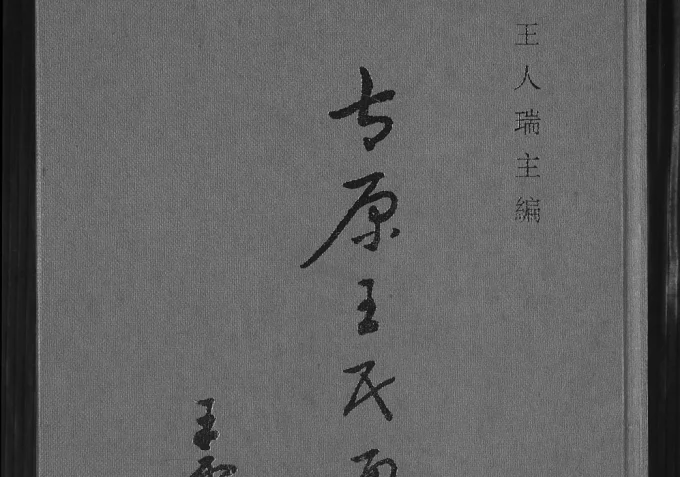 王人瑞主編
原王氏
王